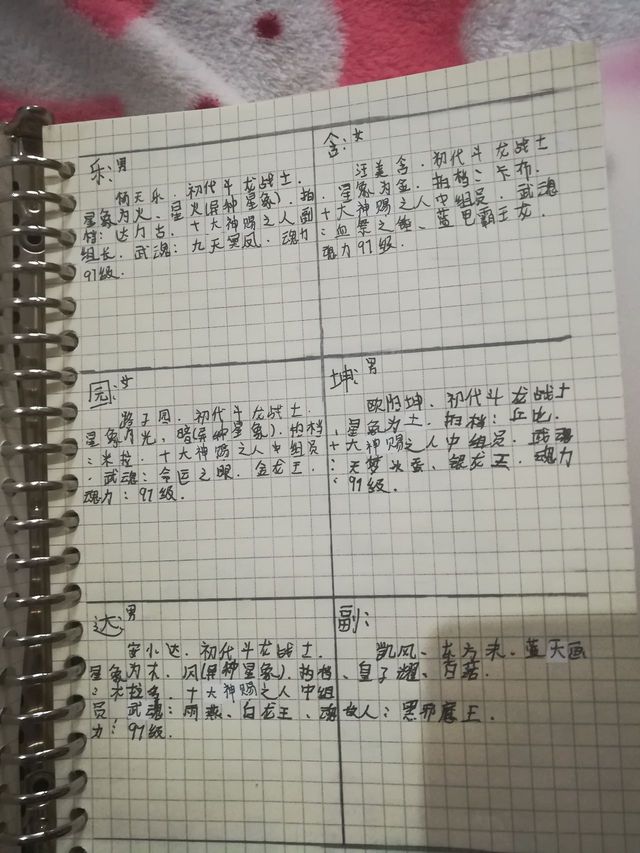 乐:男
杨天乐，初代斗龙战士.
星象为火、星火(异种星象)，拍
档：达力古，十大神赐之人副
组长，武魂：九天冥凤，魂力
97级.
含:女
汪美含，初代斗龙战士
，星象为金，拍档：卡布，
十大神赐之人中组员，武魂
：血祭之、蓝电霸王龙
魂力97级.
园:女
路子园，初代斗龙战士.
星象为光、暗(异种星象)，拍档
：米拉，十大神赐之人中组员
，武魂：命运之眼、金龙王，
魂力：97级.
坤:男
欧阳坤，初代斗龙战士
，星象为土，拍档：丘比，
十大神赐之人中组员，武魂
：天梦冰蚕、银龙王，魂力
：97级.
达:男
字小达，初代斗龙战士.
星象为木、风(异种星象)，拍档
：木拉多，十大神赐之人中组
员，武魂：雨燕、白龙王、魂
力：97级.
副:
凯风、东方末、蓝天画
、皇子耀、百诺.
敌人：黑邪魔王.